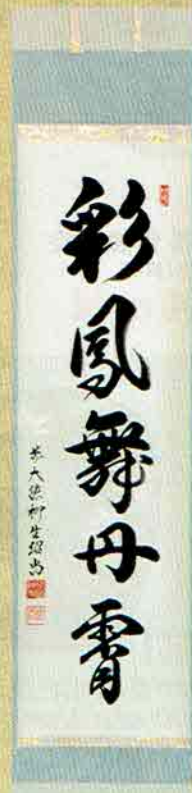 彩鳳舞丹霄
前大徳柳生紹尚